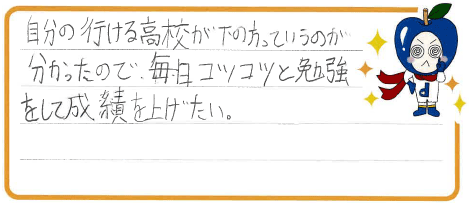 自分の行ける高校が下の方っていうのが
分かったので、毎日コツコツと勉強
をして成績を上げたい。
d